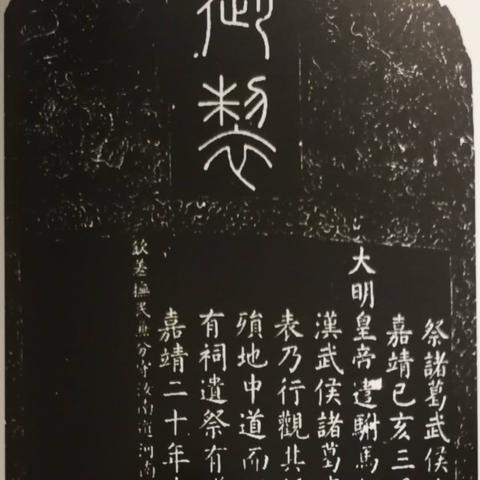 御製
祭諸葛武侯
嘉靖己亥三
大明皇帝遣駙馬
漢武侯諸葛
表乃行觀其
殞地中道而
有祠遺祭有
嘉靖二十年
欽差撫民兼分守汝南道河南